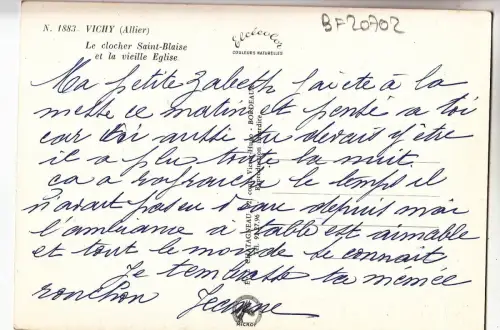 N. 1883. VICHY (Allier)
Le clocher Saint-Blaise
et la vieille Eglise
elcécolor
COULEURS NATURELLES
BF20702
Ma petite Zabeth j'ai été à la
messe ce matin et pensé a toi
car toi aussi tu devais y être
il a plu toute la nuit.
ça a rafraichi le temps il
n'avait pas eu d'eau depuis mai
l'ambiance a table est aimable
et tout le monde se connait
Je t'embrasse ta mémée
ronchon
CHATAGNEAU BORDEAUX
Reproduction interdite